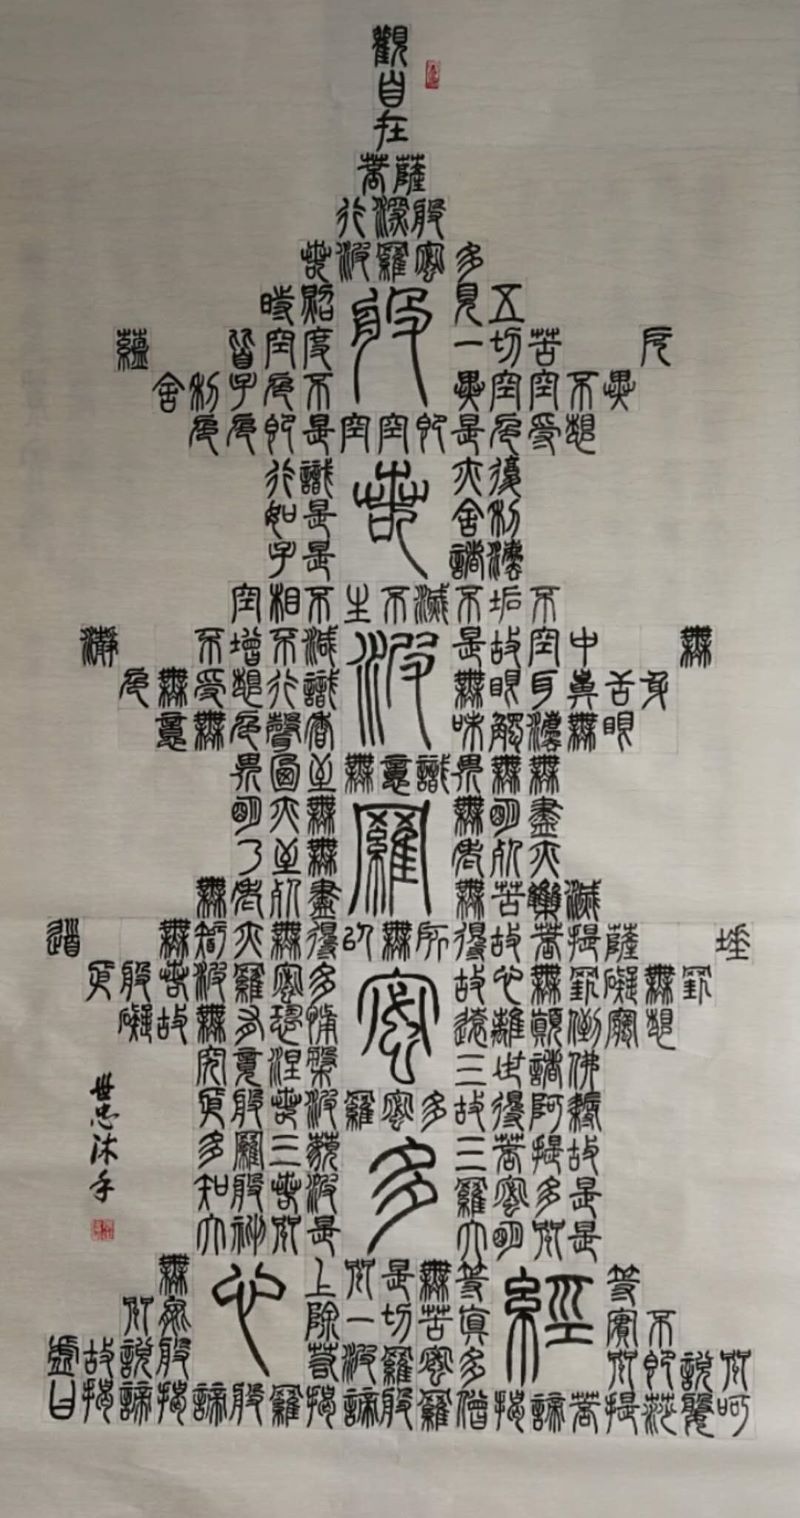 觀
自
在
菩薩
行深般
若波羅蜜多
時照見五
蘊皆空度一切苦厄
舍利子色不異空不異
色色即是空空即是色受想
行識亦復
如是舍利
子是諸法
空相不生不滅不垢不
淨不增不減是故空中無
色無受想行識無眼耳鼻舌身
意無色聲香味觸法無眼
界乃至無意識界無無
明亦無無明盡
乃至無老死亦
無老死盡無苦集滅
道無智亦無得以無所得故菩提薩埵
依般若波羅蜜多故心無罣
礙故無有恐怖遠離顛倒夢想
究竟涅槃三世諸佛
依般若波羅蜜多故得阿耨
多羅三藐三菩提故
知般若波羅蜜多是
大神咒是大明咒是
無上咒是無等等
咒能除一切苦真實不
虛故說般若波羅蜜多咒即說咒
曰揭諦揭諦般羅揭諦般羅僧揭諦菩提莎婆訶
般若波羅蜜多心經
世忠沐手